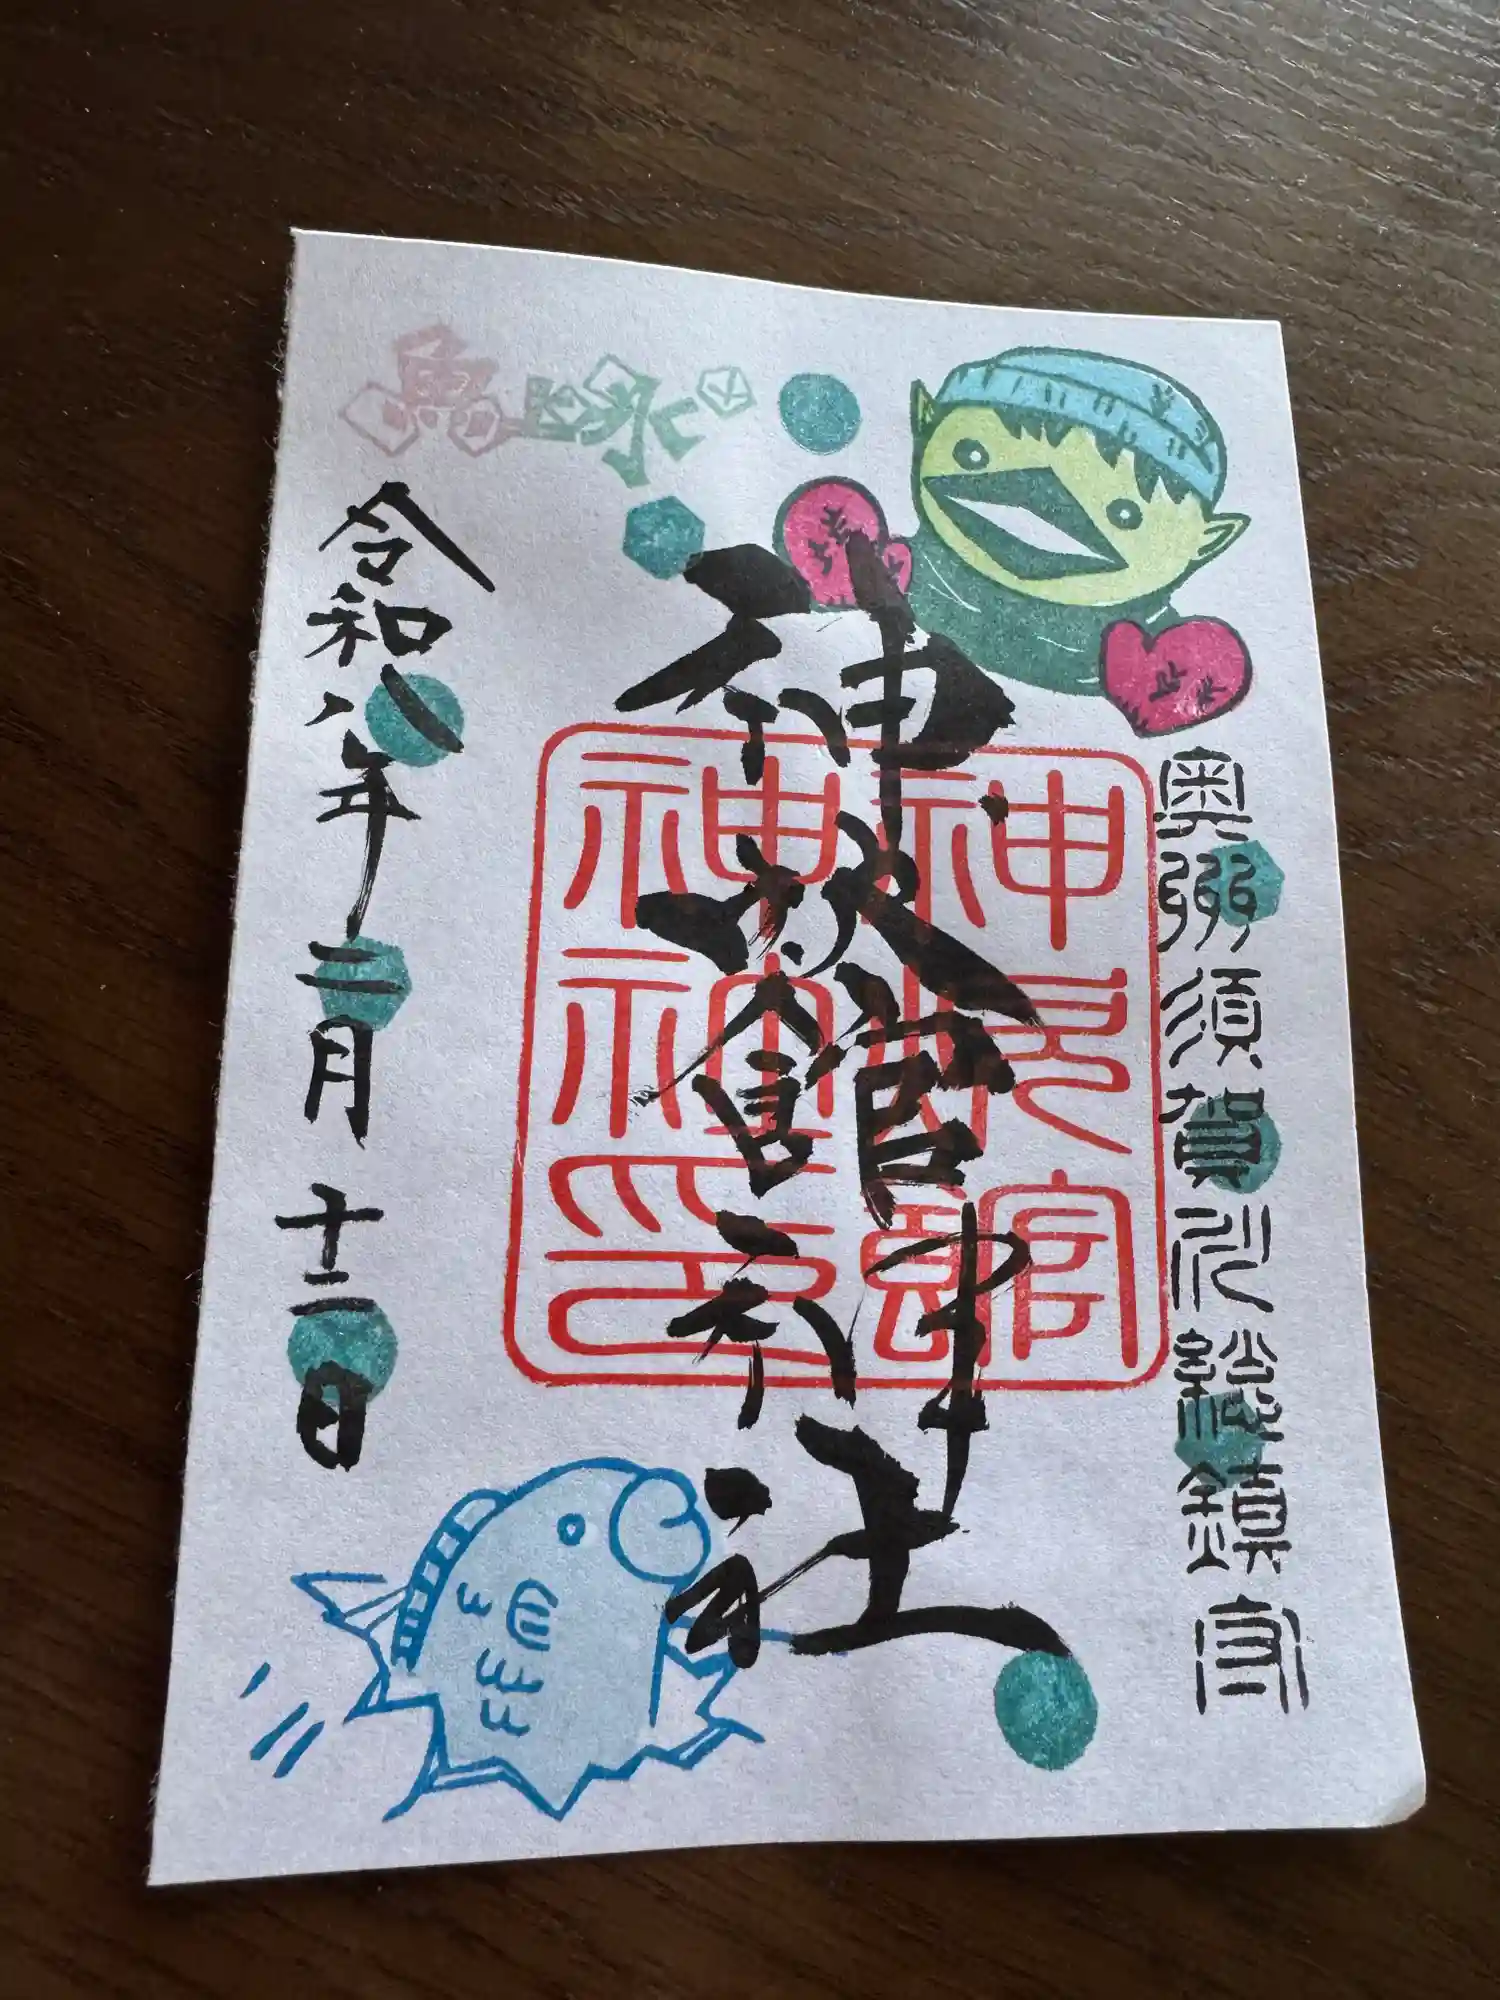 奥州須賀川総鎮守
神炊館神社
神炊館神社印
令和八年二月十二日